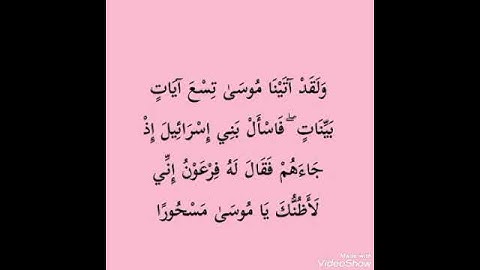 وَلَقَدْ آتَيْنَا مُوسَىٰ تِسْعَ آيَاتٍ
بَيِّنَاتٍ ۖ فَاسْأَلْ بَنِي إِسْرَائِيلَ إِذْ
جَاءَهُمْ فَقَالَ لَهُ فِرْعَوْنُ إِنِّي
لَأَظُنُّكَ يَا مُوسَىٰ مَسْحُورًا
Made with
VideoShow